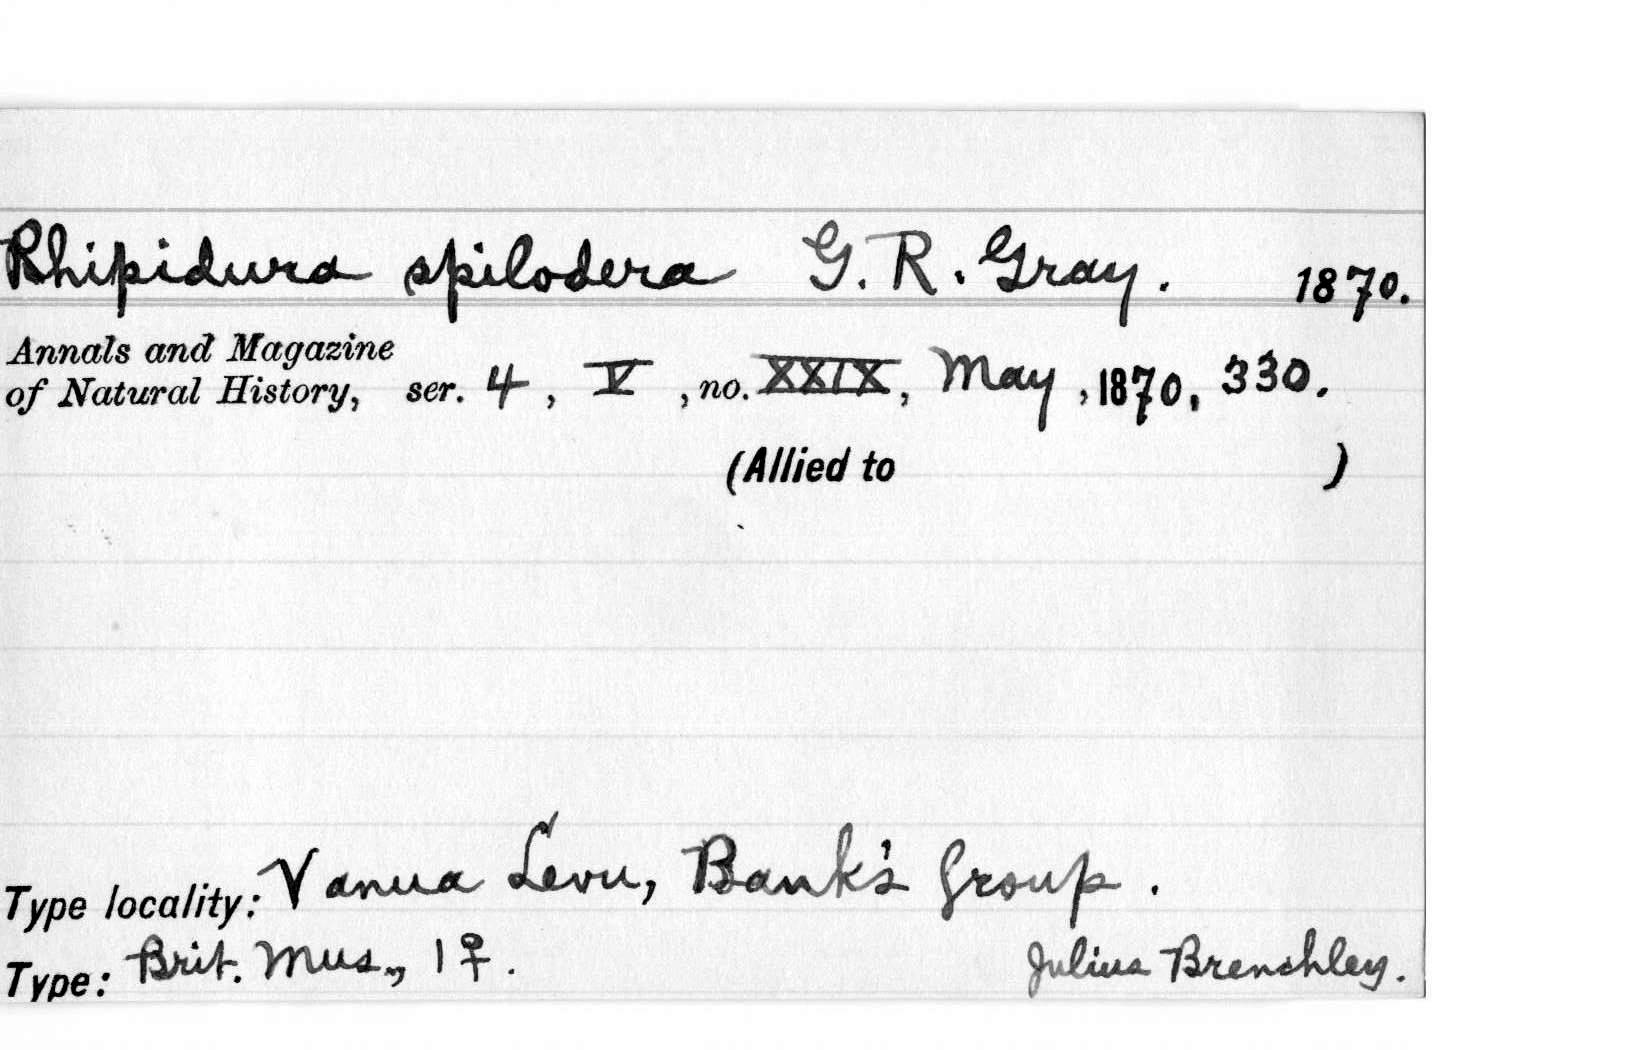 Rhipidura spilodera G. R. Gray. 1870.
Annals and Magazine
of Natural History, ser. 4, V, no. XXIX, May, 1870, 330.
(Allied to )
Type locality: Vanua Levu, Bank's Group.
Type: Brit. Mus., 1♀. Julius Brenchley.